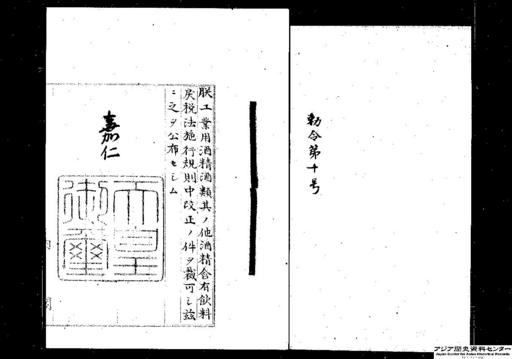 勅令第十号
朕工業用酒精酒類其ノ他酒精含有飲料
戻税法施行規則中改正ノ件ヲ裁可シ茲
ニ之ヲ公布セシム
嘉仁
天皇
御璽
内
閣
アジア歴史資料センター
Japan Center for Asian Historical Records